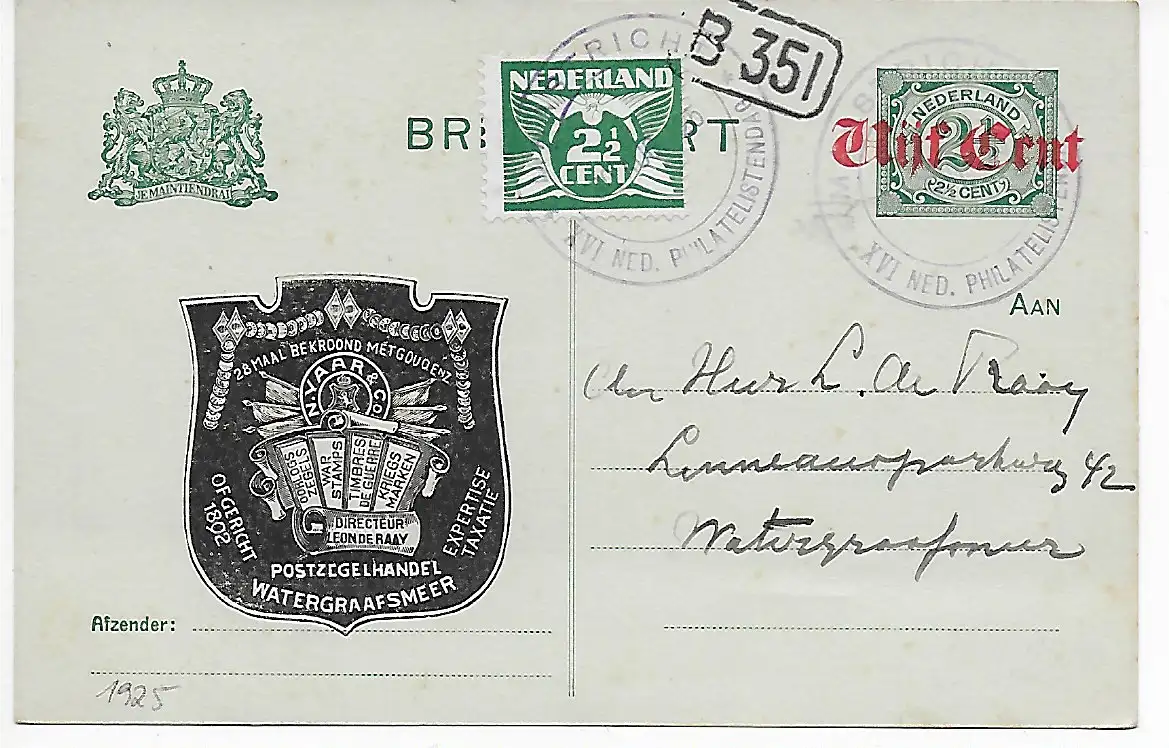 B 351
NEDERLAND
2½
CENT
BRI RT
NEDERLAND
2½
(2½ CENT)
Vijf Cent
JE MAINTIENDRAI
XVI NED. PHILATELISTENDAG
XVI NED. PHILATELISTEN
AAN
den Heer L. de Raay
Linnaeusparkweg 42
Watergraafsmeer
28 MAAL BEKROOND MET GOUD ENZ.
N. YAAR & Co.
OORLOGS ZEGELS
WAR STAMPS
TIMBRES DE GUERRE
KRIEGS MARKEN
DIRECTEUR
LEON DE RAAY
OPGERICHT
1892
EXPERTISE
TAXATIE
POSTZEGELHANDEL
WATERGRAAFSMEER
Afzender:
1925